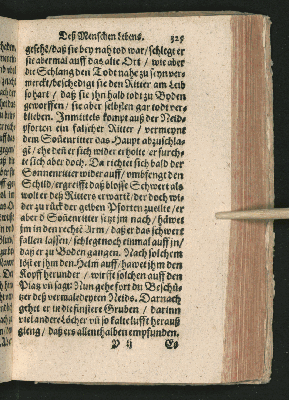 Deß Menschen Lebens. 325
gesetzt/ daß sie bey nah tod war/ schlegt er
sie abermal auff das alte Ort / wie aber
die Schlang den Todt nahe zu seyn ver-
merckt/ beschedigt sie den Ritter am Leib
so hart / daß sie jhn halb tod zu Boden
geworffen / sie aber selbsten gar todt ver-
blieben. Inmittels kompt auß der Neid-
pforten ein falscher Ritter / vermeynt
dem Sonenritter das Haupt abzuschla-
gē/ ehe deñ er sich wider erholte/ er fürch-
te sich aber doch. Da richtet sich bald der
Sonnenritter wider auff/ umbfengt den
Schild/ ergreifft das blosse Schwert als
wolt er deß Ritters erwartē/ der doch wi-
der zu rück der gelben Pforten zueilte/ er
aber d Soñenritter setzt jm nach / hawet
jm in den rechtē Arm/ daß er das schwert
fallen lassen/ schlegt noch einmal auff jn/
daß er zu Boden gangen. Nach solchem
löst er jhm den Helm auff/ hawet jhm den
Kopff herunder / wirfft solchen auff den
Platz vñ sagt: Nun gehe fort du Beschü-
tzer deß vermaledeyten Neids. Darnach
gehet er in die finstere Gruben / darinn
viel andere Löcher vñ so kalte lufft herauß
gieng/ daß ers allenthalben empfunden.
Es